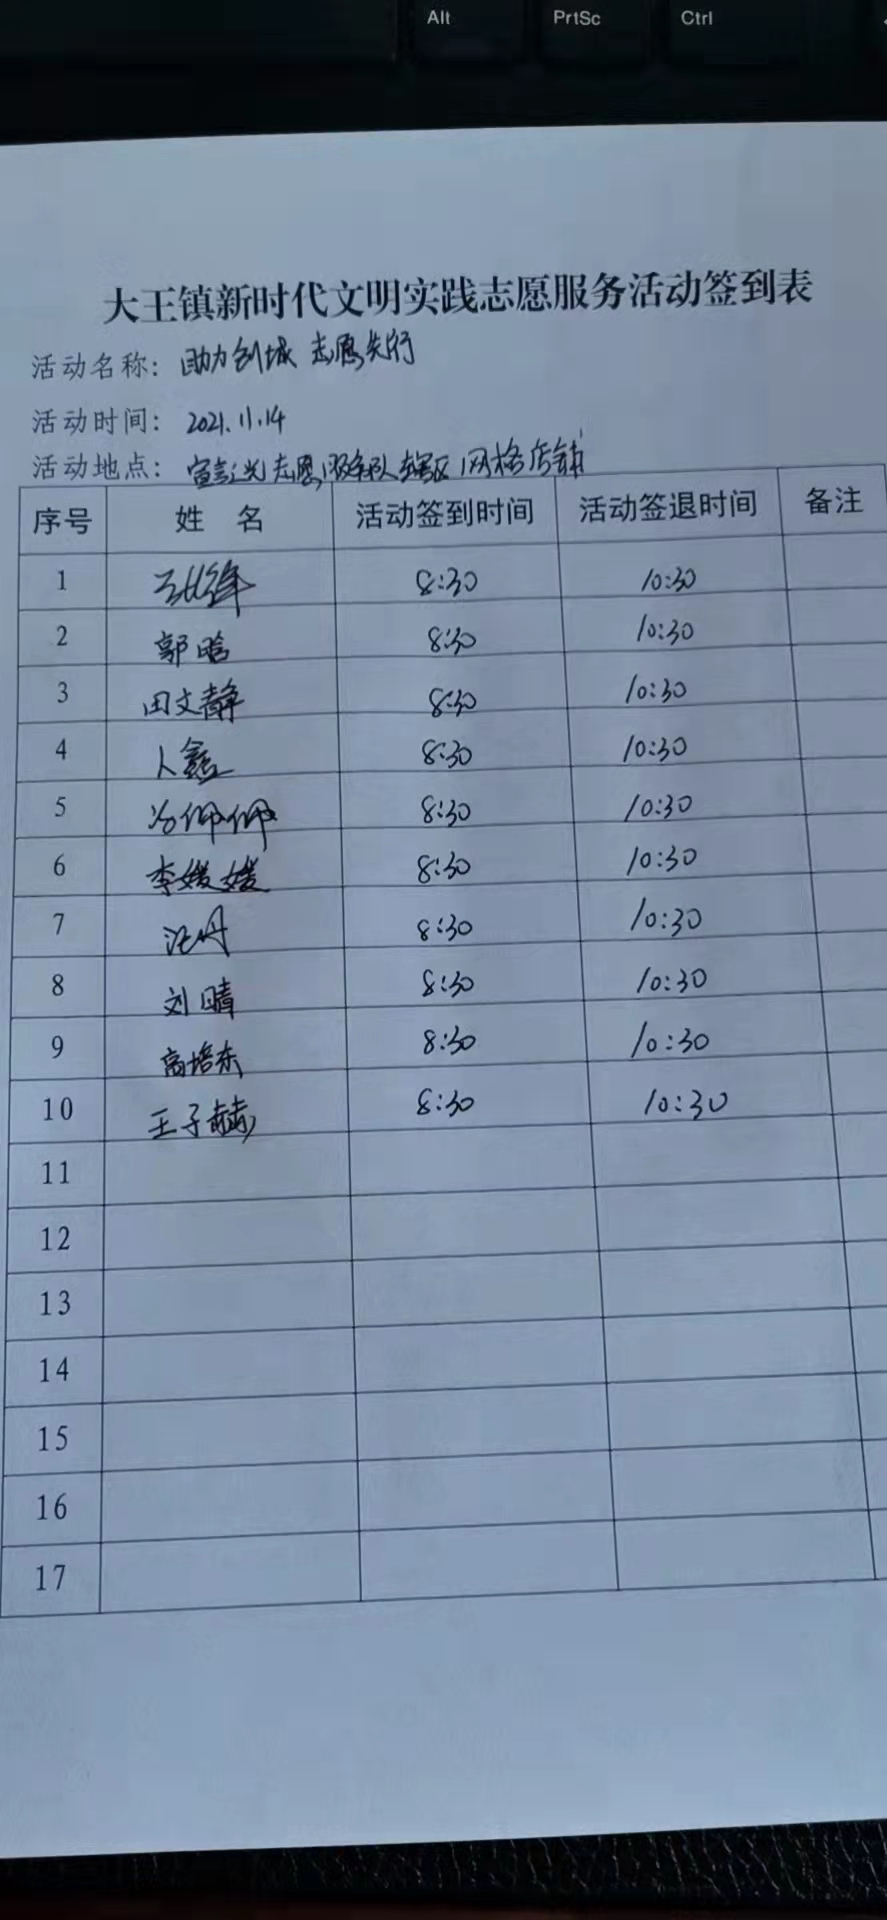 Alt PrtSc Ctrl
大王镇新时代文明实践志愿服务活动签到表
活动名称：助力创城 志愿先行
活动时间：2021.11.14
活动地点：宣讲志愿服务队辖区网格店铺
序号 姓名 活动签到时间 活动签退时间 备注
1 8:30 10:30
2 郭晗 8:30 10:30
3 田文静 8:30 10:30
4 鑫 8:30 10:30
5 8:30 10:30
6 李媛媛 8:30 10:30
7 汪丹 8:30 10:30
8 刘晴 8:30 10:30
9 高培东 8:30 10:30
10 王子赫 8:30 10:30
11
12
13
14
15
16
17